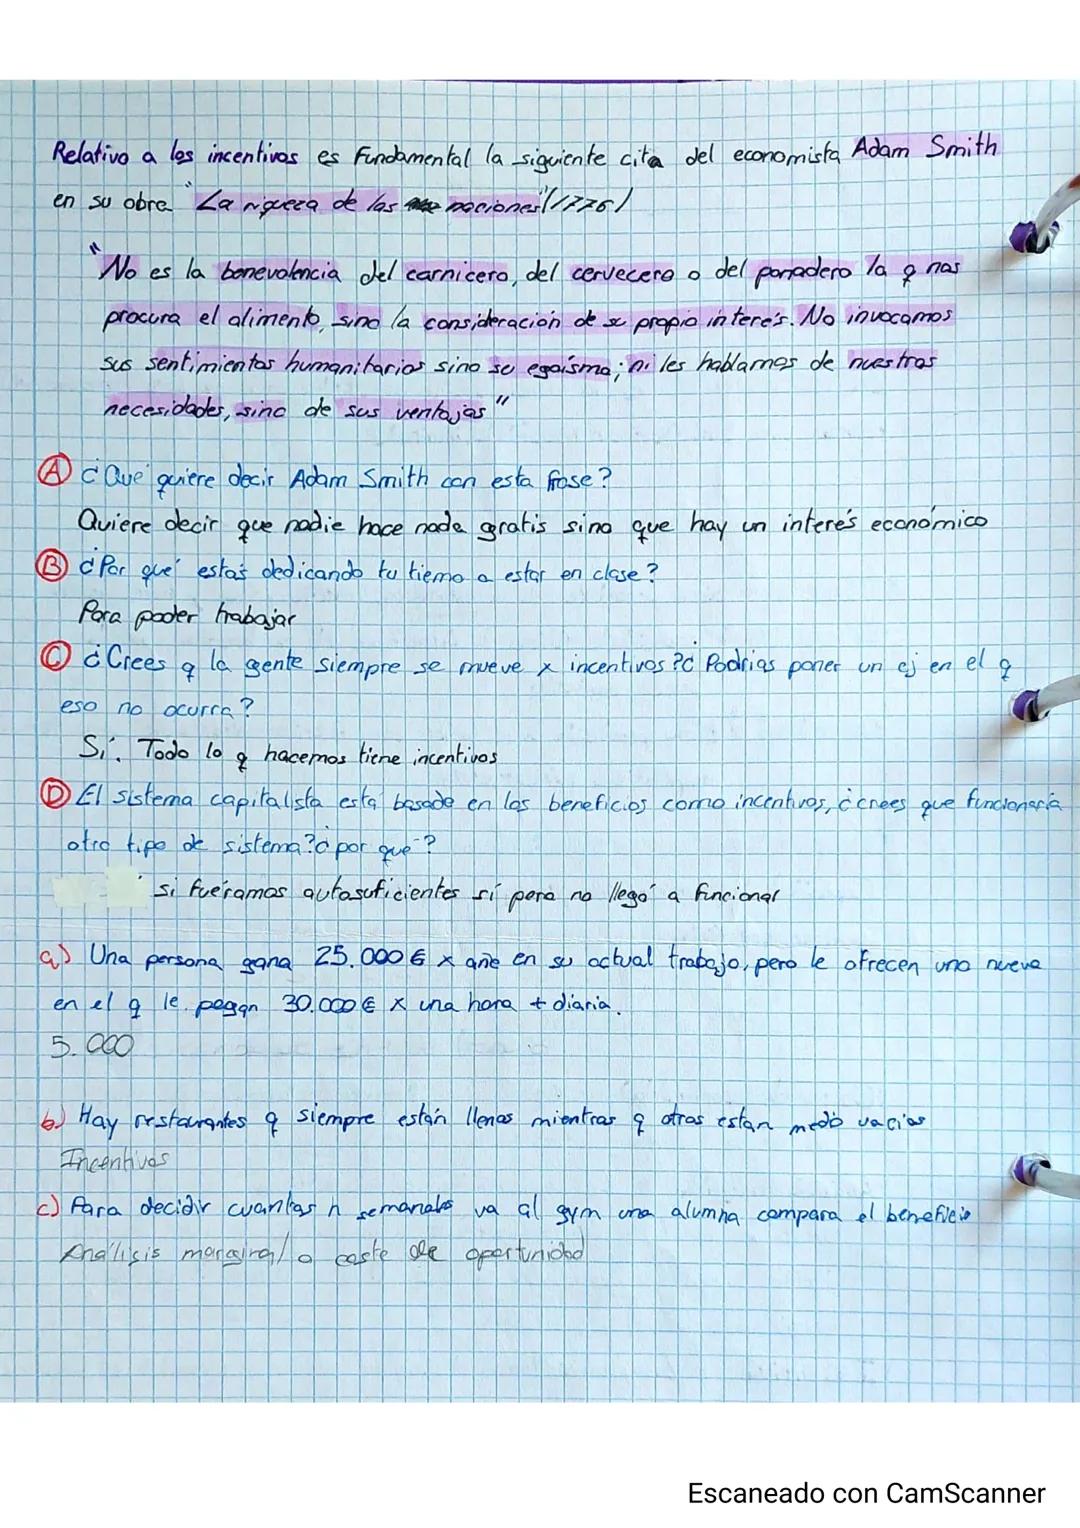 Relativo a los incentivos es fundamental la siguiente cita del economista Adam Smith
en su obra "La riqueza de las naciones"(1776)
"No es la benevolencia del carnicero, del cervecero o del panadero la q nos
procura el alimento, sino la consideración de su propio interés. No invocamos
sus sentimientos humanitarios sino su egoísmo; ni les hablamos de nuestras
necesidades, sino de sus ventajas"
A ¿Qué quiere decir Adam Smith con esta frase?
Quiere decir que nadie hace nada gratis sino que hay un interés económico
B ¿Por qué estás dedicando tu tiemo a estar en clase?
Para poder trabajar
C ¿Crees q la gente siempre se mueve x incentivos?¿Podrías poner un ej en el q
eso no ocurra?
Sí. Todo lo q hacemos tiene incentivos
D El sistema capitalista está basado en los beneficios como incentivos, ¿crees que funcionaría
otro tipo de sistema?¿por qué?
si fuéramos autosuficientes sí pero no llegó a funcional
a) Una persona gana 25.000€ x año en su actual trabajo, pero le ofrecen uno nuevo
en el q le pagan 30.000€ x una hora + diaria.
5.000
b) Hay restaurantes q siempre están llenos mientras q otros estan medo vacíos
Incentivos
c) Para decidir cuantas h semanales va al gym una alumna compara el beneficio
Análisis marginal o coste de oportunidad
Escaneado con CamScanner